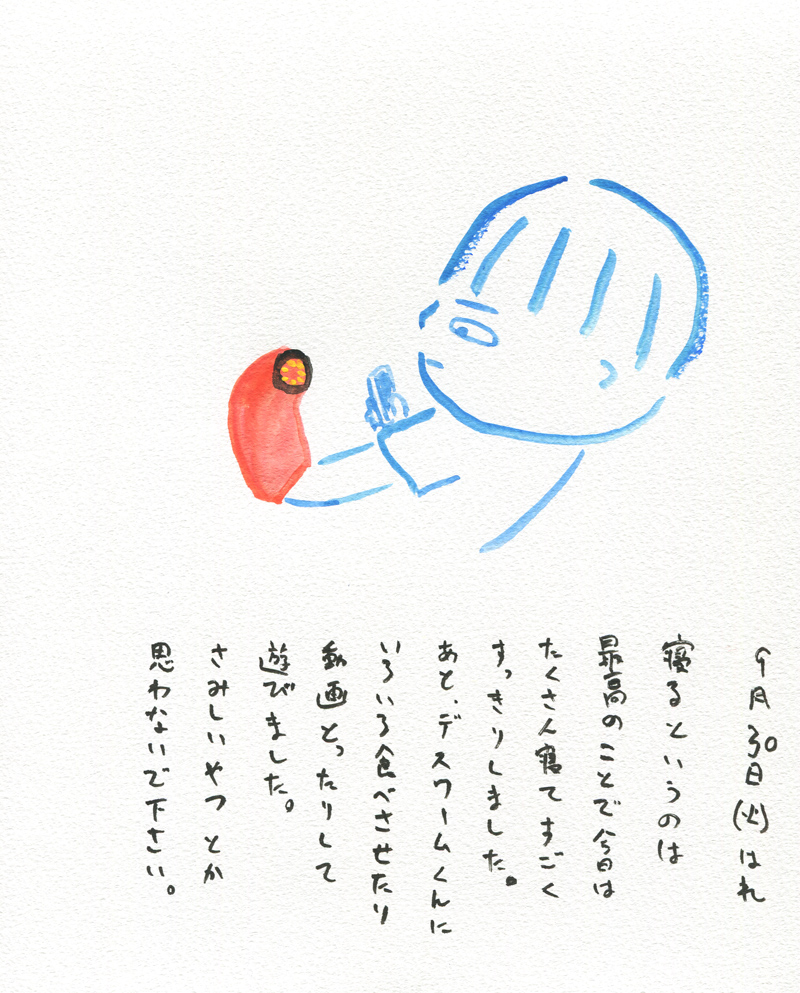 9月30日(火)はれ
寝るというのは
最高のことで今日は
たくさん寝てすごく
すっきりしました。
あと、デスワームくんに
いろいろ食べさせたり
動画とったりして
遊びました。
さみしいやつとか
思わないで下さい。